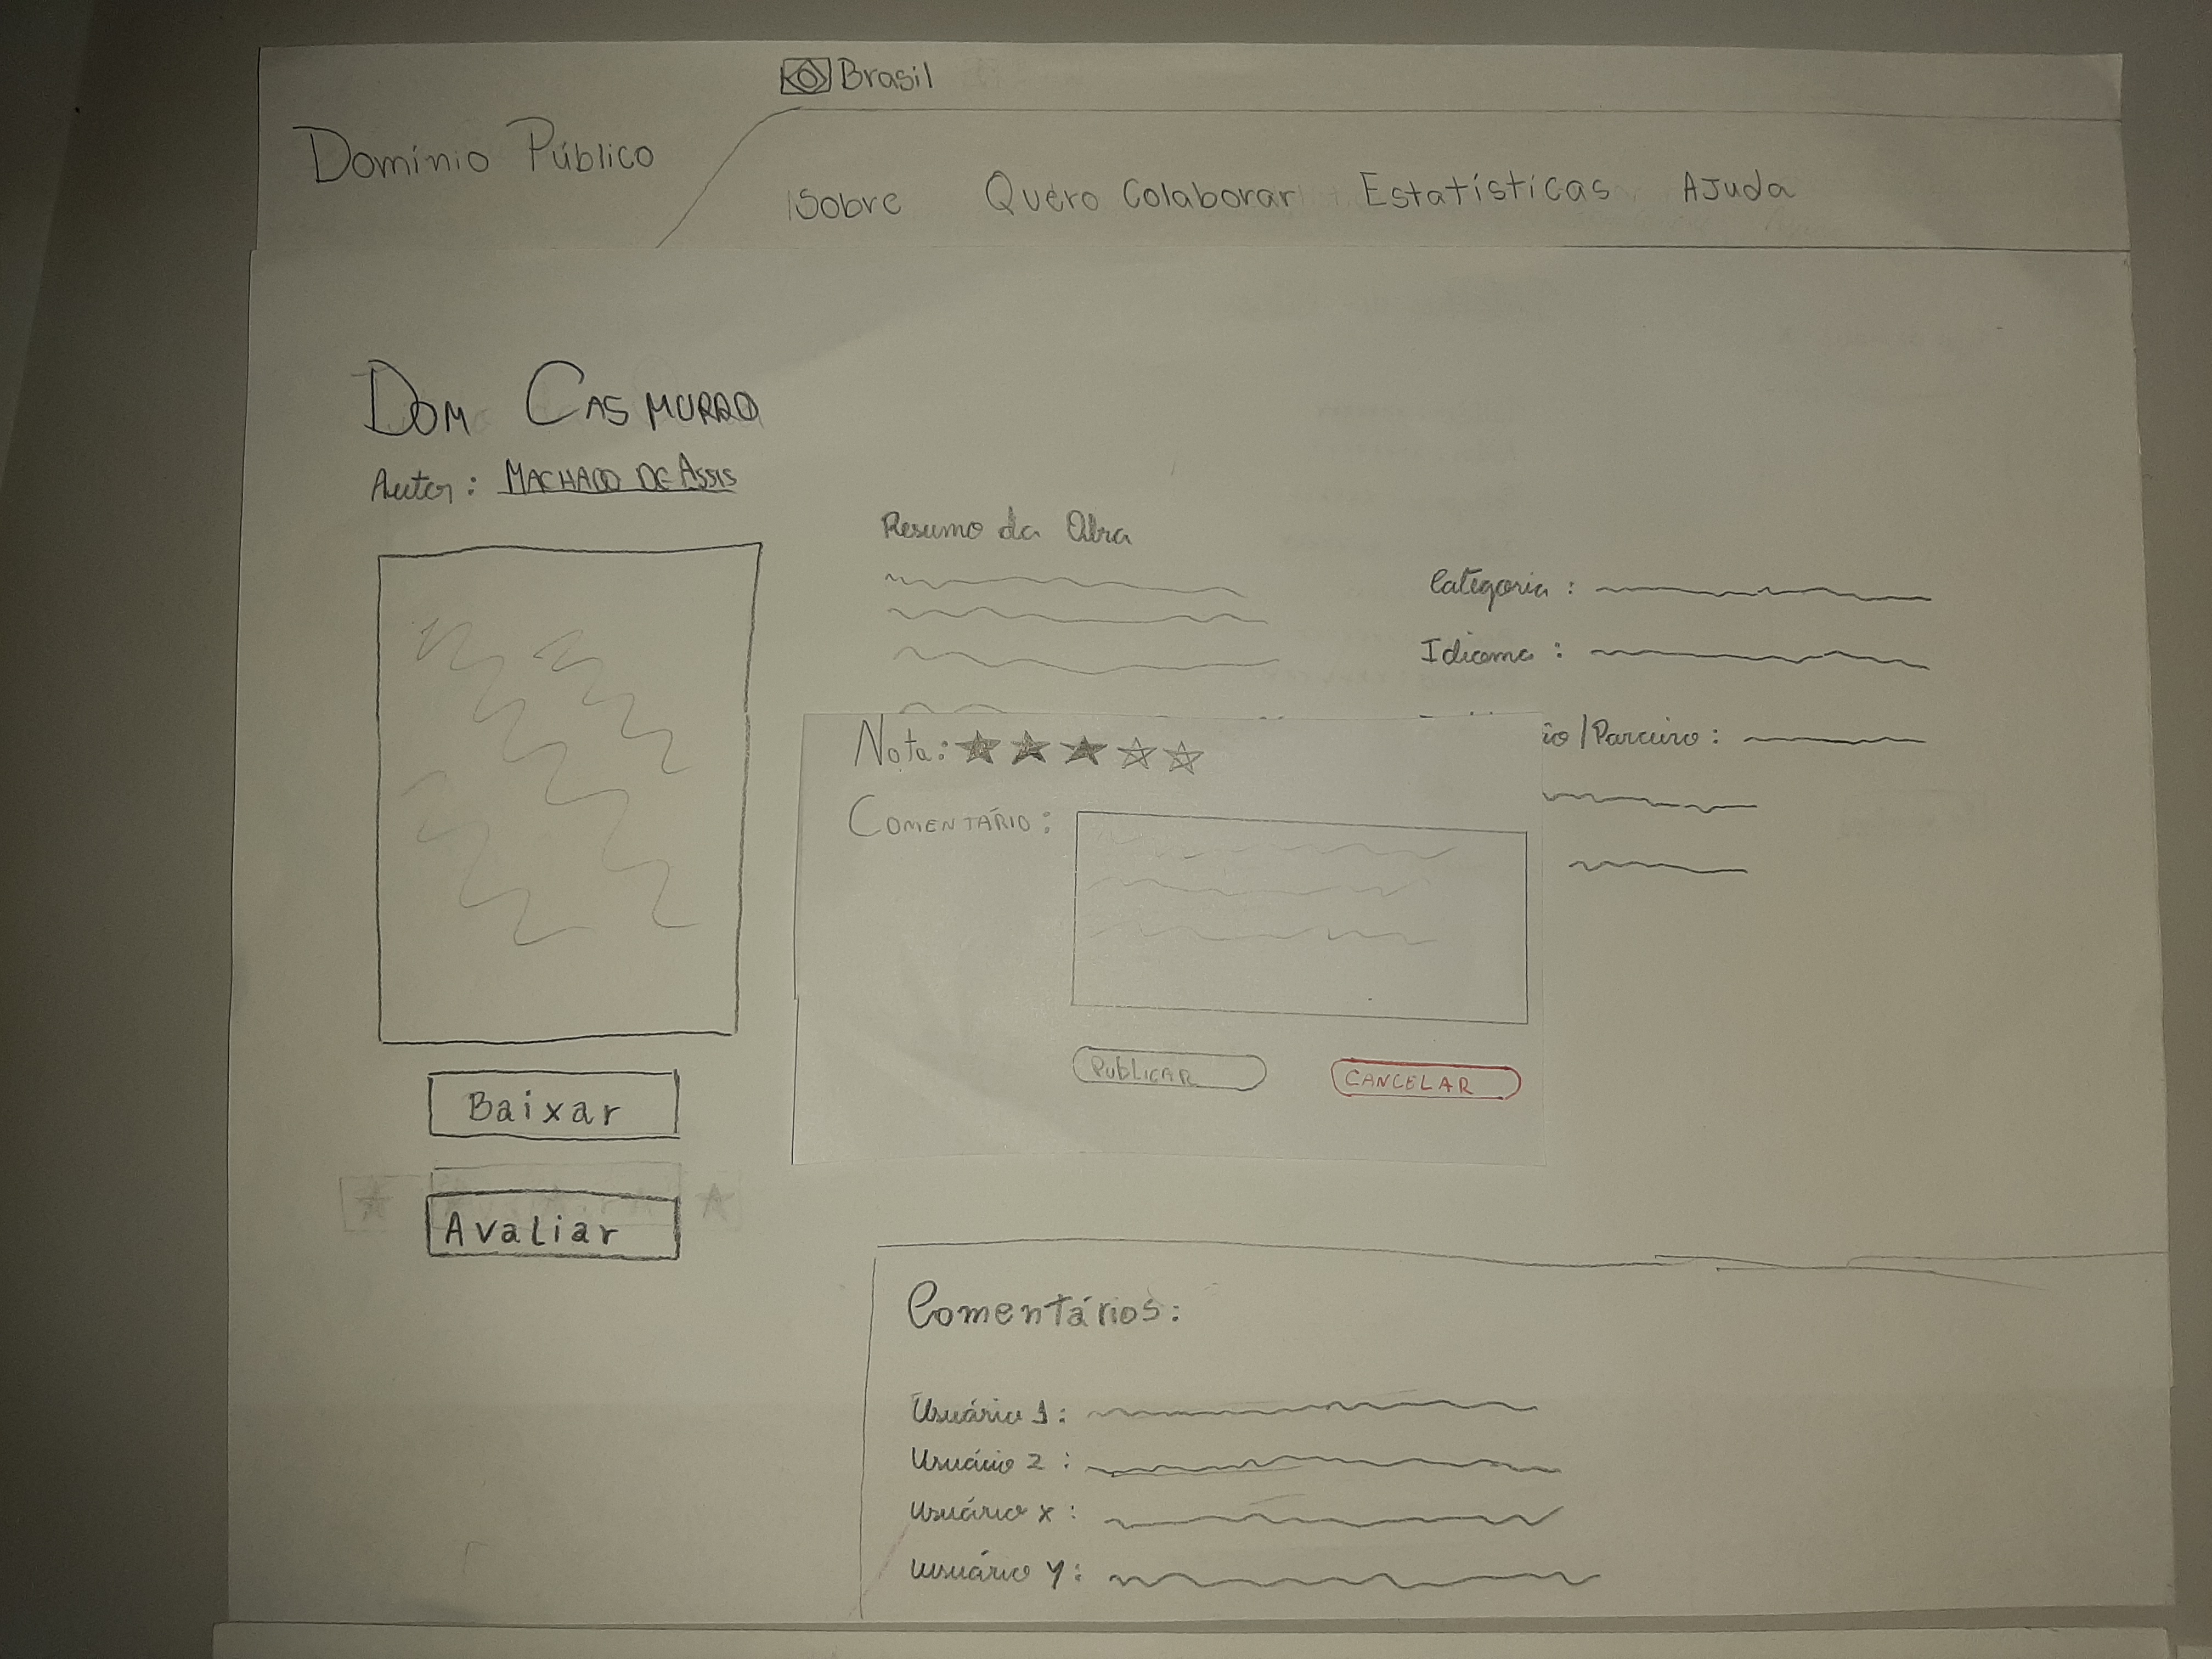 Brasil
Domínio Público
Sobre Quero Colaborar Estatísticas Ajuda
Dom Casmurro
Autor: Machado de Assis
Resumo da Obra
Categoria:
Idioma:
io/Parceiro:
Nota:
Comentário:
Publicar
Cancelar
Baixar
Avaliar
Comentários:
Usuário 1:
Usuário 2:
Usuário x:
Usuário y: